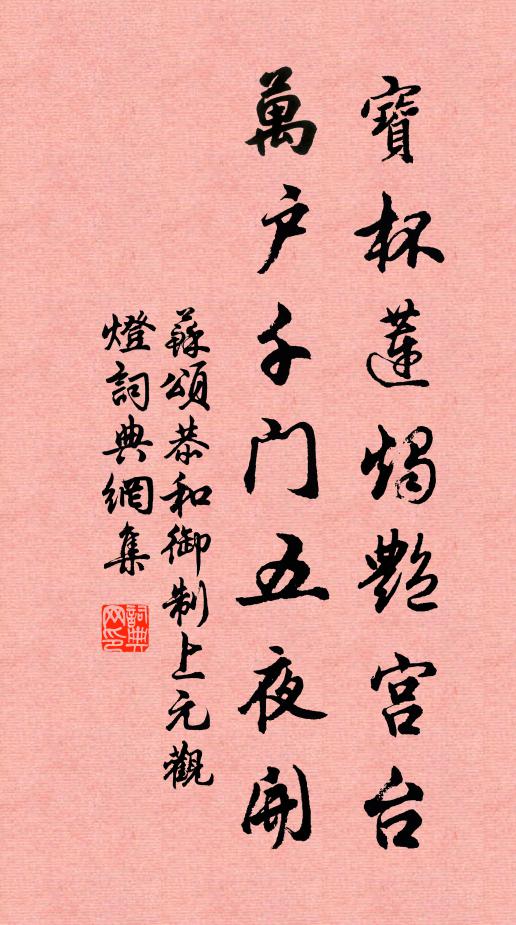 寶杯蓮燭艷宮台
萬户千门五夜開
蘇頌恭和御制上元觀
燈詞典網集
詞典网印